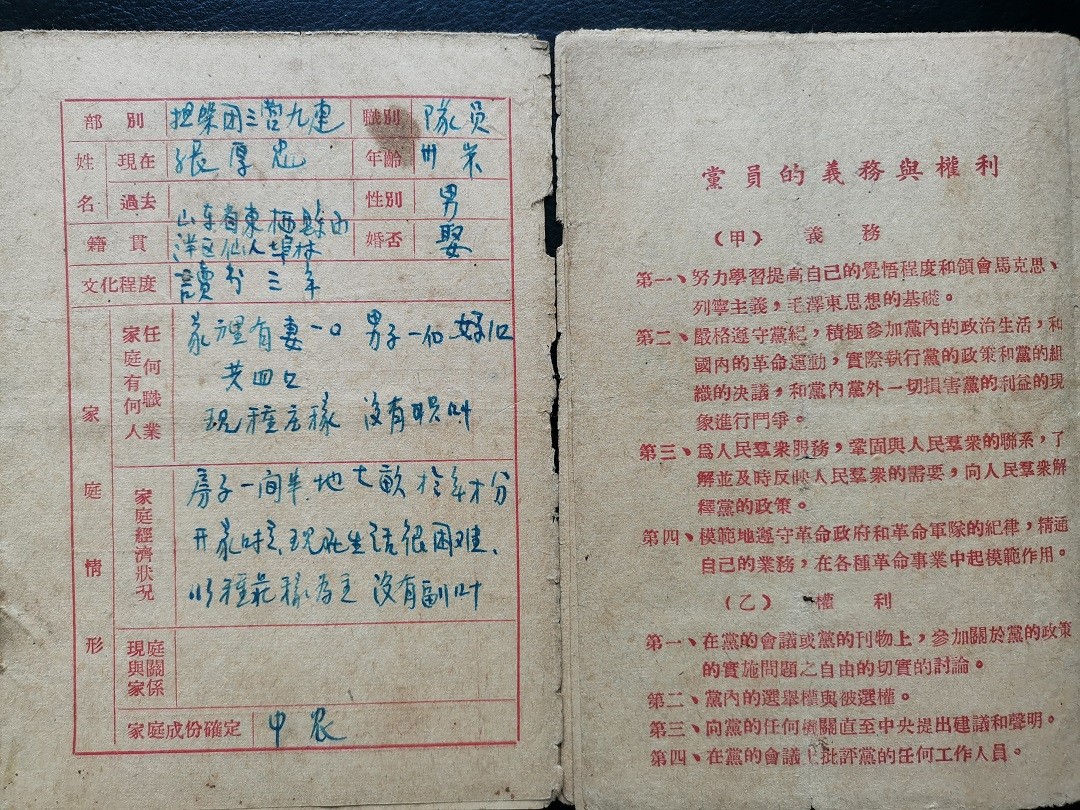 部別 担架团三营九連 職別 隊员
姓名 現在 張厚忠 年齡 卅岁
過去 性別 男
籍貫 山东省東栖縣西
洋区仙人埠村 婚否 娶
文化程度 讀书三年
家庭情形
家庭有何人任何職業
家裡有妻一口 男子一个 女
共四口
現種庄稼 没有职叶
家庭經濟狀況
房子一间半 地七畝
开家时 現在生活很困难、
以種庄稼為主 没有副叶
現與家庭關係
家庭成份確定 中农
黨員的義務與權利
（甲） 義務
第一、努力學習提高自己的覺悟程度和領會馬克思、
列寧主義，毛澤東思想的基礎。
第二、嚴格遵守黨紀，積極參加黨內的政治生活，和
國內的革命運動，實際執行黨的政策和黨的組
織的決議，和黨內黨外一切損害黨的利益的現
象進行鬥爭。
第三、爲人民羣衆服務，鞏固與人民羣衆的聯系，了
解並及時反映人民羣衆的需要，向人民羣衆解
釋黨的政策。
第四、模範地遵守革命政府和革命軍隊的紀律，精通
自己的業務，在各種革命事業中起模範作用。
（乙） 權利
第一、在黨的會議或黨的刊物上，參加關於黨的政策
的實施問題之自由的切實的討論。
第二、黨內的選舉權與被選權。
第三、向黨的任何機關直至中央提出建議和聲明。
第四、在黨的會議上批評黨的任何工作人員。